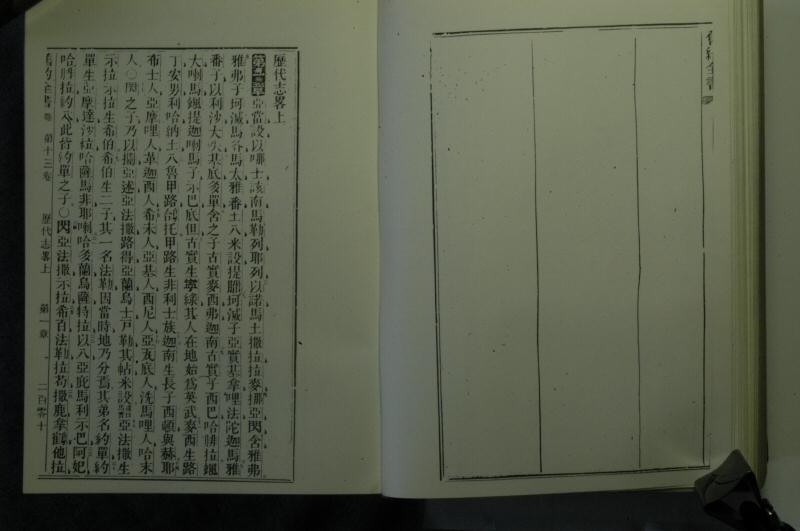 舊約全書
歷代志畧上
第一章 亞當設以哪士該南馬勒列耶列以諾馬土撒拉拉麥挪亞閃含雅弗
雅弗子珂滅馬各馬太雅番土八米設提臘珂滅子亞實基拿哩法陀迦馬雅
番子以利沙大失基底多單含之子古實麥西弗迦南古實子西巴哈腓拉颯
大喇馬颯提迦喇馬子示巴底但古實生寧綠其人在地始為英武麥西生路
丁安男利哈納土八魯甲路託甲路生非利士族迦南生長子西頓與赫耶
布士人亞摩哩人革迦西人希未人亞基人西尼人亞瓦底人洗馬哩人哈末
人〇閃之子乃以攔亞述亞法撒路得亞蘭烏士戶勒其帖米設亞法撒生
示拉示拉生希伯希伯生二子其一名法勒因當時地乃分焉其弟名約單約
單生亞摩達沙拉哈薩馬非耶喇哈多蘭烏薩特拉以八亞庇馬利示巴阿妃
哈腓拉約八此皆約單之子〇閃亞法撒示拉希百法勒拉苟撒鹿拿鶴他拉
舊約全書 第十三卷 歷代志畧上 第一章 二百零十